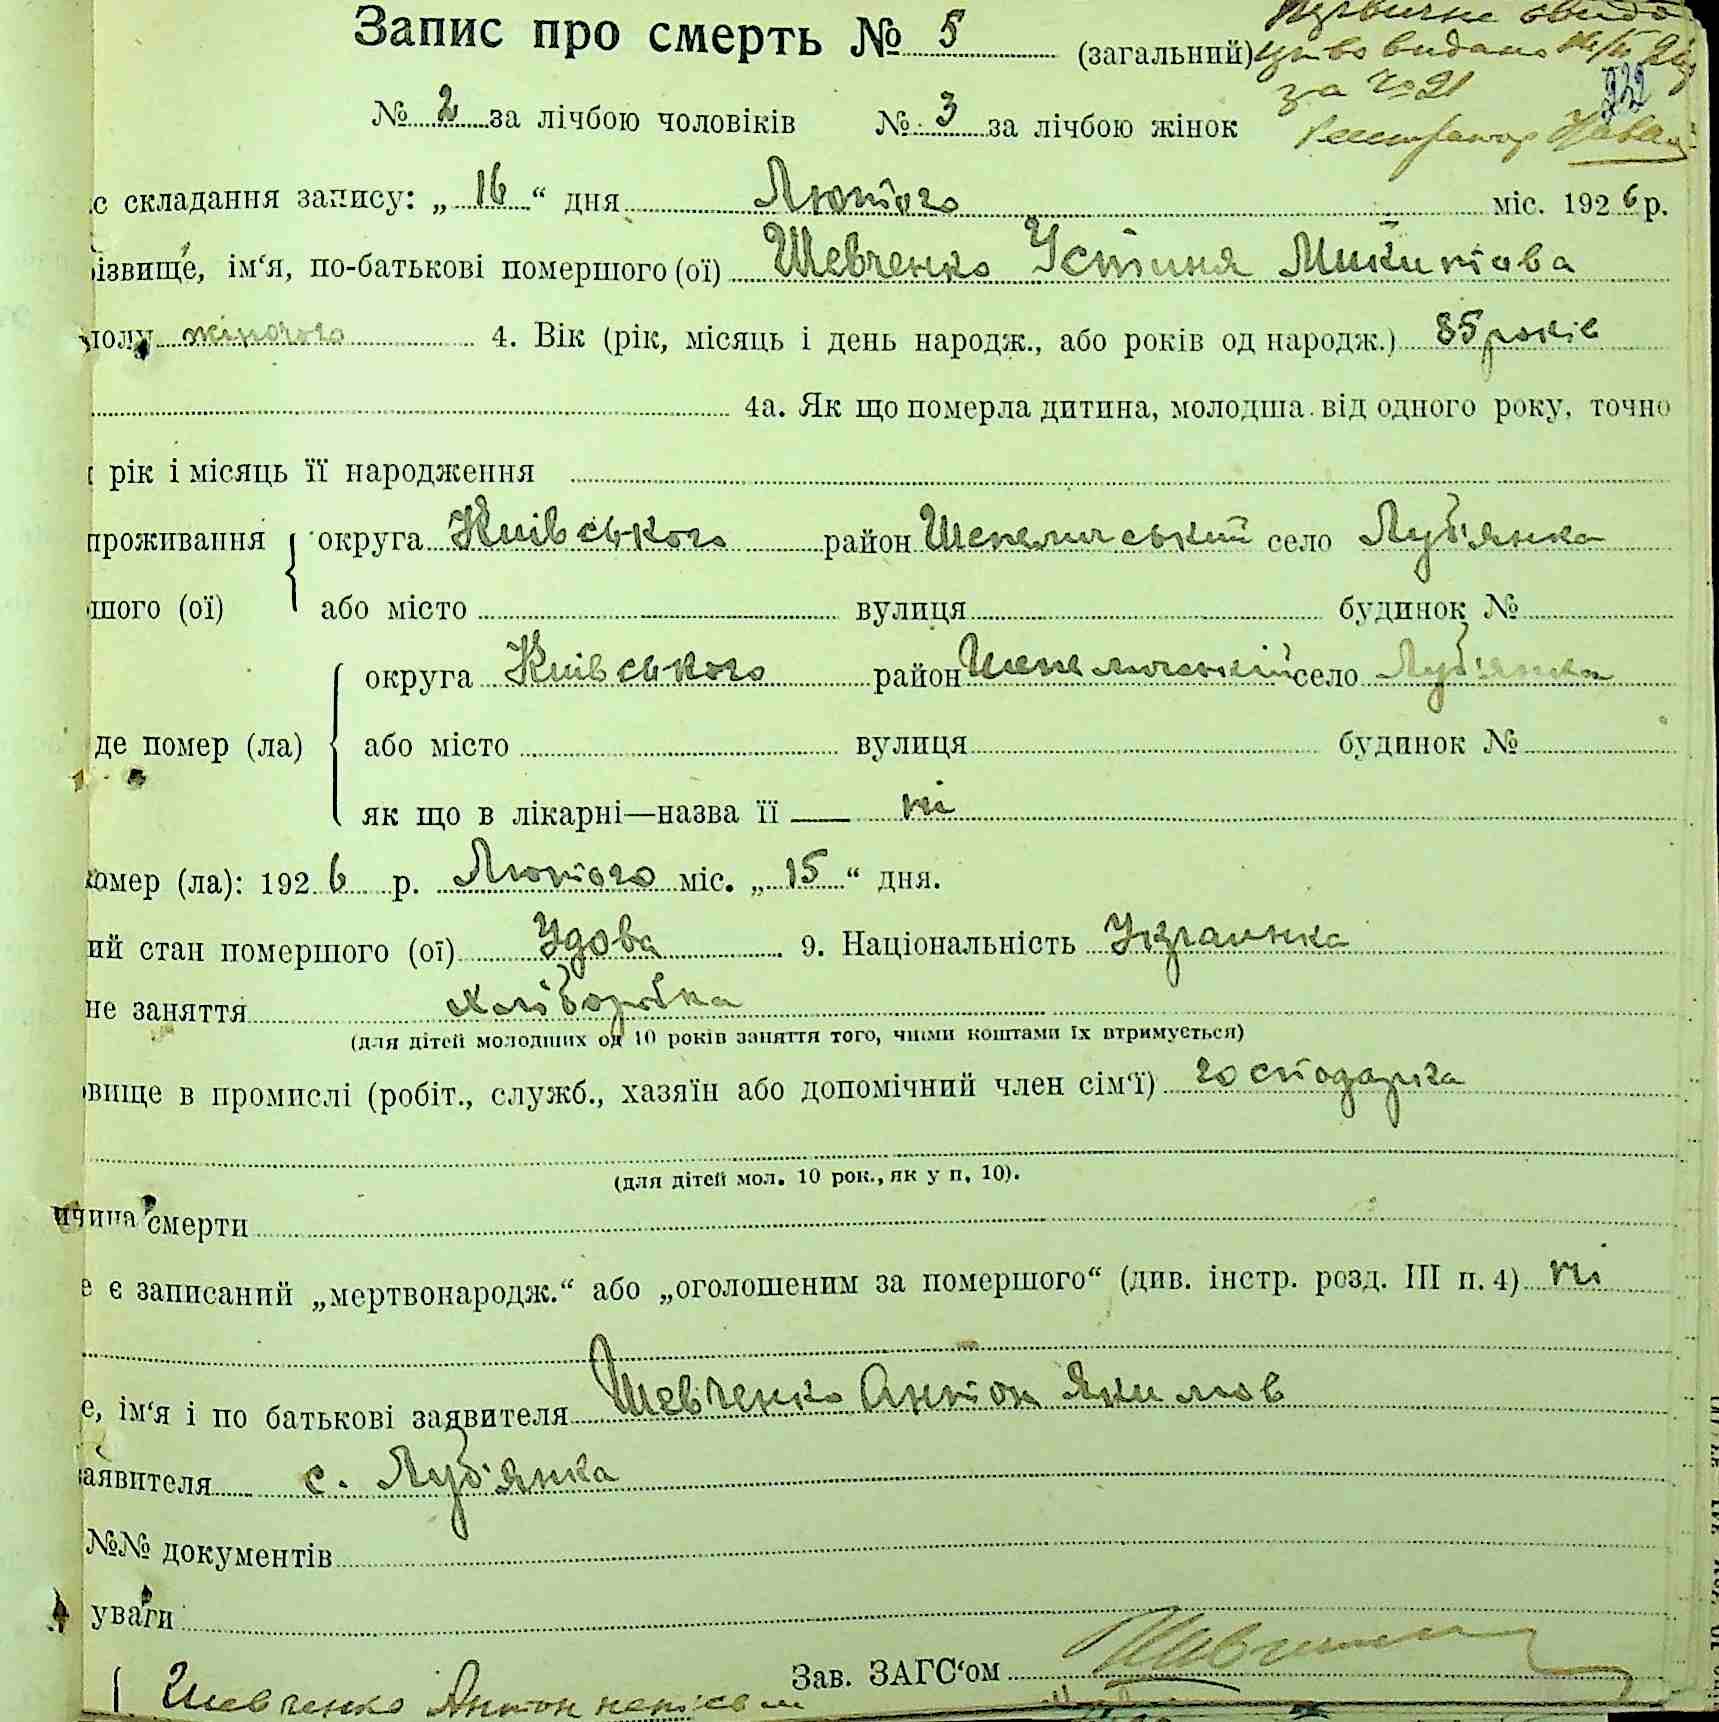 Запис про смерть № 5 (загальний)
Первичне свидо
цтво видано
за № 21
232
№ 2 за лічбою чоловіків № 3 за лічбою жінок
Реєстратор
с складання запису: „ 16 “ дня Лютого міс. 1926 р.
ізвище, ім‘я, по-батькові помершого (ої) Шевченко Устиня Микитова
полу жіночого 4. Вік (рік, місяць і день народж., або років од народж.) 85 років
4а. Як що померла дитина, молодша від одного року, точно
рік і місяць її народження
проживання округа Київського район Шепеличський село Луб'янка
шого (ої) або місто вулиця будинок №
округа Київського район Шепеличський село Луб'янка
де помер (ла) або місто вулиця будинок №
як що в лікарні—назва її — ні
омер (ла): 1926 р. Лютого міс. „ 15 “ дня.
ий стан помершого (ої) Удова 9. Національність Українка
не заняття хліборобка
(для дітей молодших од 10 років заняття того, чиїми коштами їх втримується)
вище в промислі (робіт., служб., хазяїн або допомічний член сім‘ї) господарка
(для дітей мол. 10 рок., як у п. 10).
ичина смерти
е є записаний „мертвонародж.“ або „оголошеним за помершого“ (див. інстр. розд. III п. 4) ні
е, ім‘я і по батькові заявителя Шевченко Антон Якимов
аявителя с. Луб'янка
№№ документів
уваги
Зав. ЗАГС‘ом
Шевченко Антон